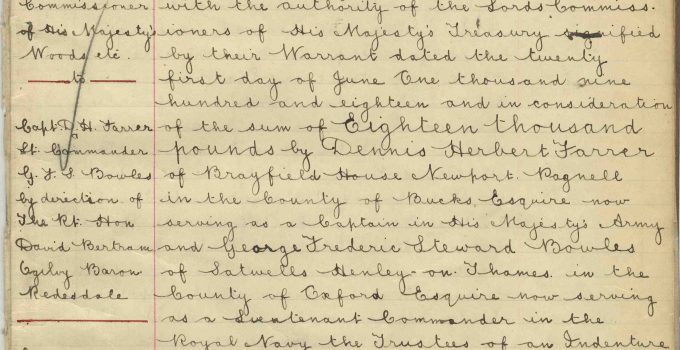 Commissioner
of His Majesty's
Woods etc.
to
Capt. D. H. Farrer
Lt. Commander
G. F. S. Bowles
by direction of
The Rt. Hon
David Bertram
Ogilvy Baron
Redesdale
with the authority of the Lords Commiss.
ioners of His Majesty's Treasury signified
by their Warrant dated the twenty
first day of June One thousand nine
hundred and eighteen and in consideration
of the sum of Eighteen thousand
pounds by Dennis Herbert Farrer
of Brayfield House Newport Pagnell
in the County of Bucks Esquire now
serving as a Captain in His Majesty's Army
and George Frederic Steward Bowles
of Satwells Henley-on-Thames in the
County of Oxford Esquire now serving
as a Lieutenant Commander in the
Royal Navy the Trustees of an Indenture